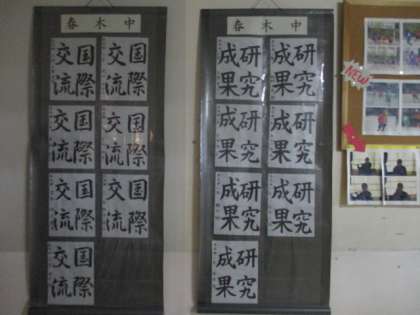 春木中
国際
交流
国際
交流
国際
交流
国際
交流
国際
交流
国際
交流
国際
交流
春木中
研究
成果
研究
成果
研究
成果
研究
成果
研究
成果
研究
成果
研究
成果
NEW